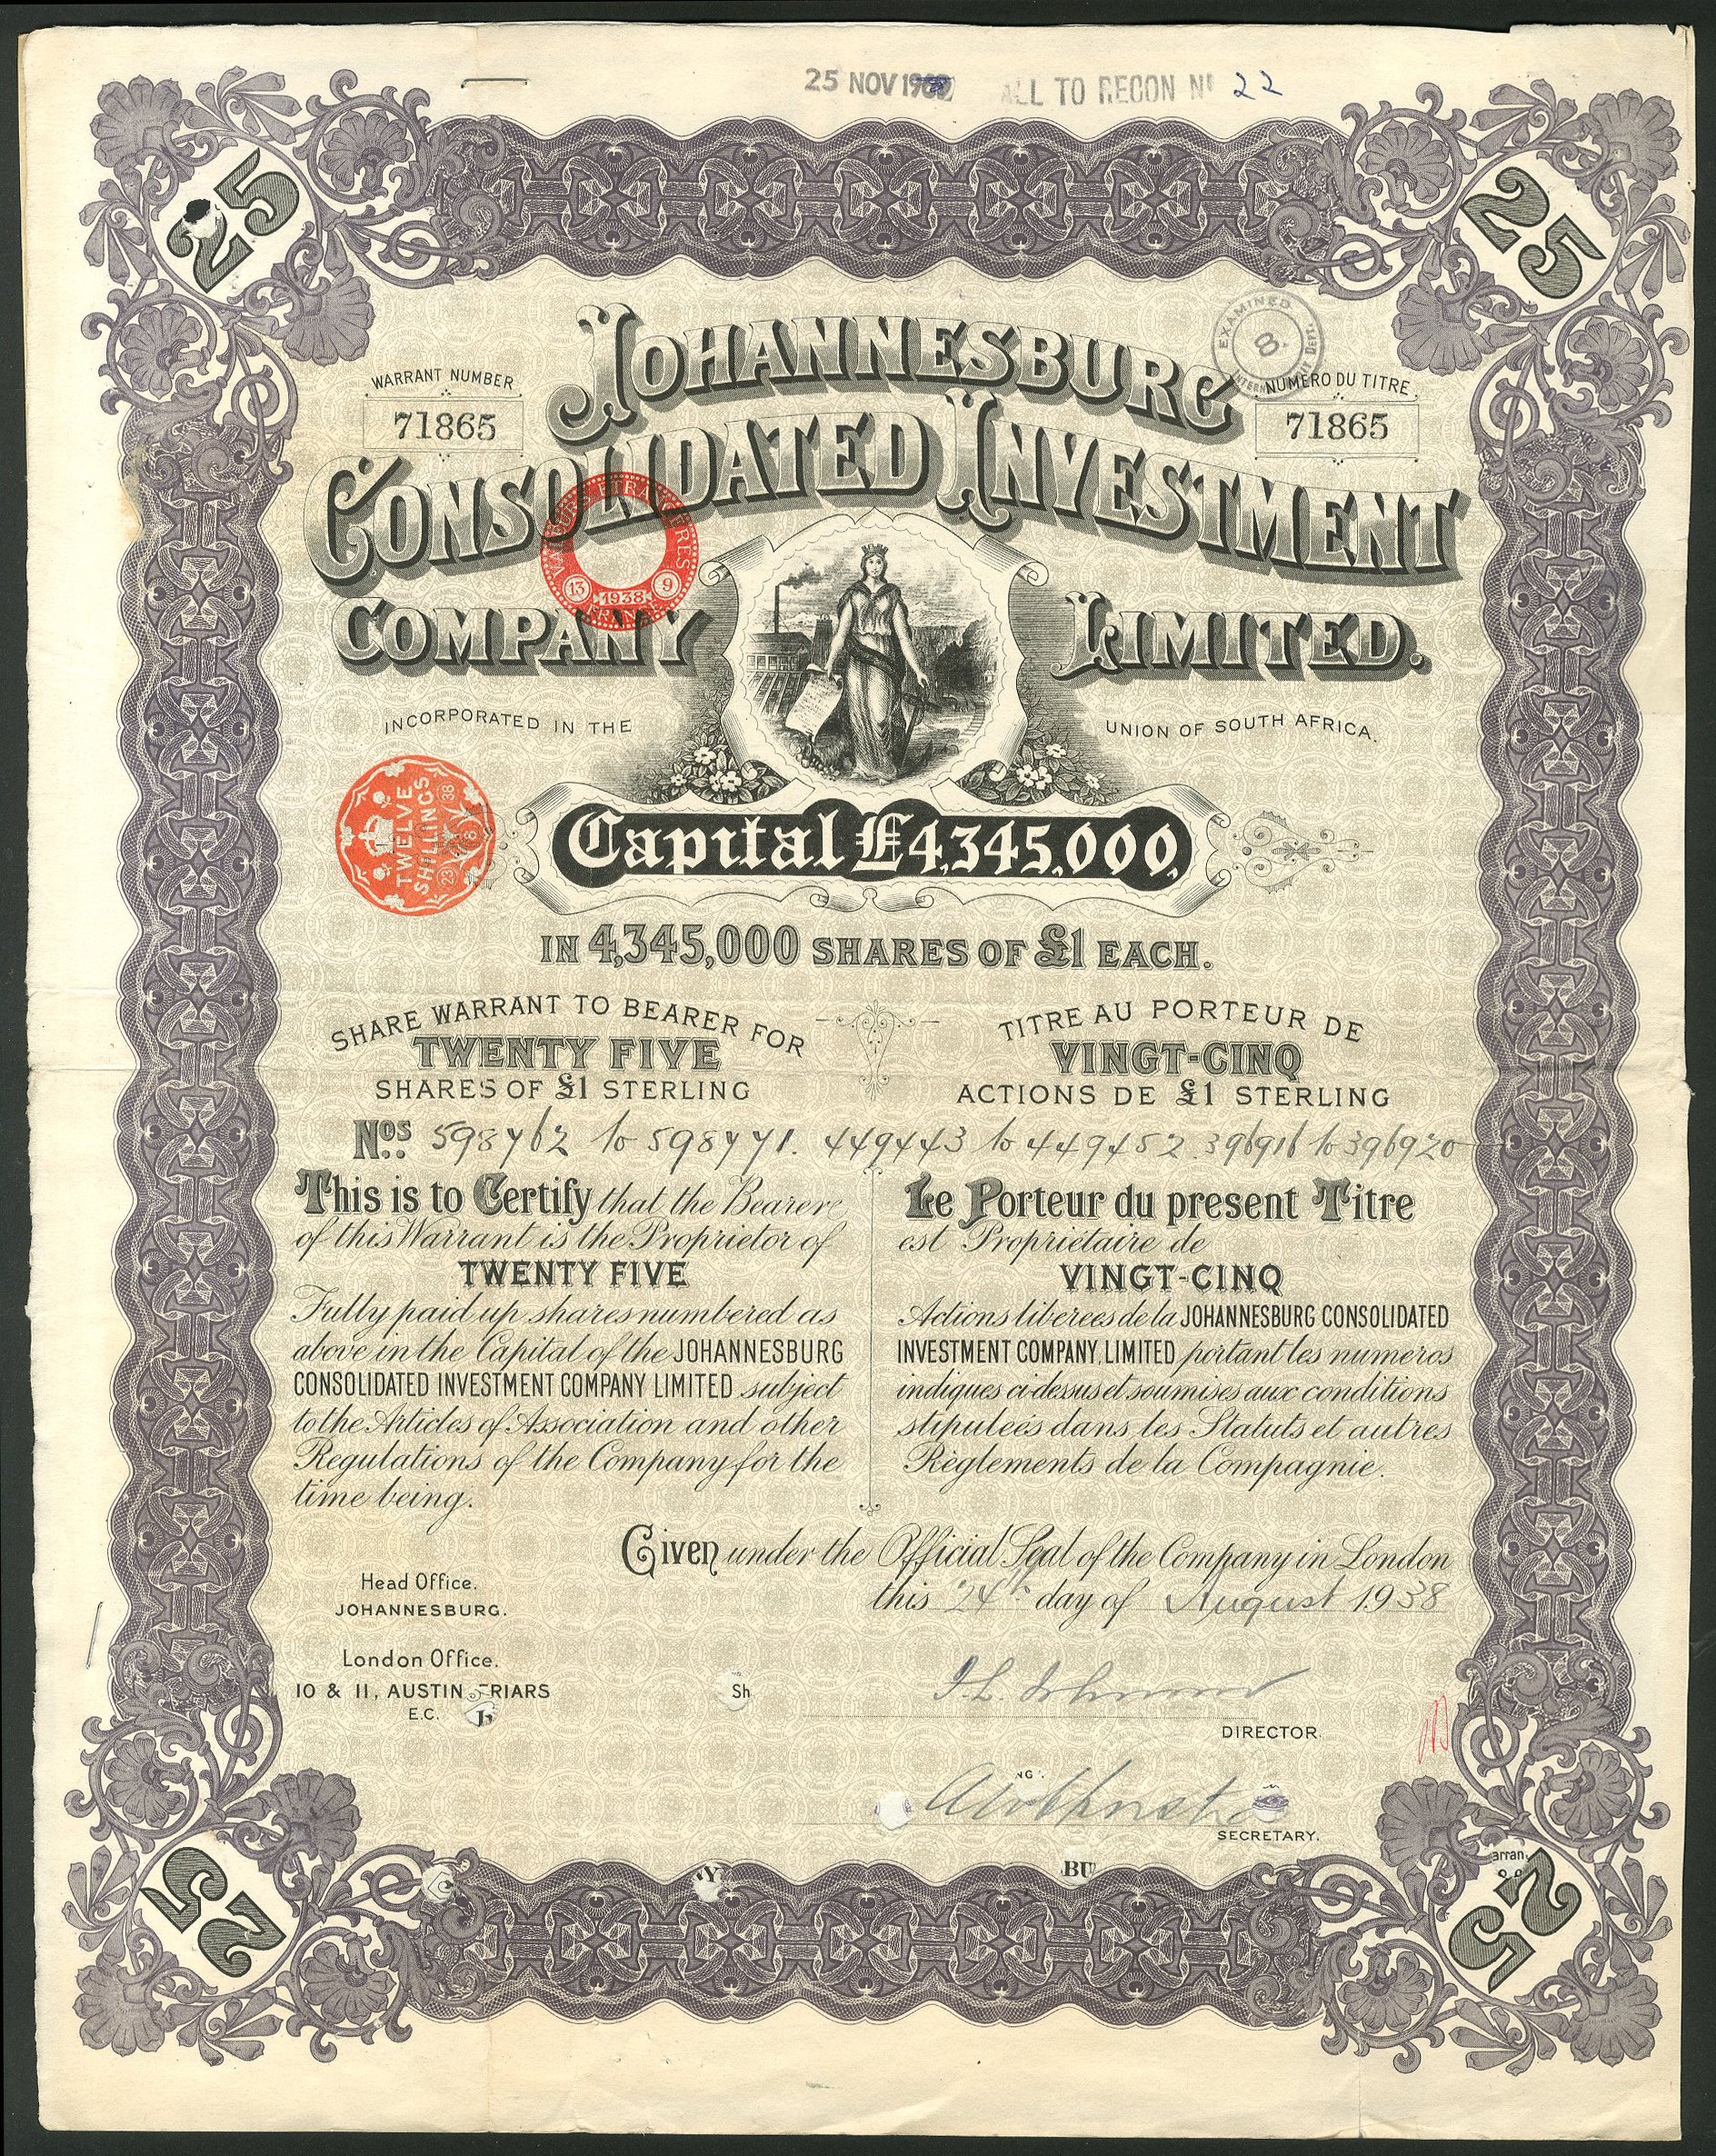 25 NOV 19 ALL TO RECON Nº 22
25
25
EXAMINED
8
DEPT.
WARRANT NUMBER
71865
NUMERO DU TITRE
71865
JOHANNESBURG
CONSOLIDATED INVESTMENT
COMPANY LIMITED.
VALEURS ETRANGERES
13 1938 9
INCORPORATED IN THE UNION OF SOUTH AFRICA.
TWELVE
SHILLINGS
23 8 38
Capital £4,345,000,
IN 4,345,000 SHARES OF £1 EACH.
SHARE WARRANT TO BEARER FOR
TWENTY FIVE
SHARES OF £1 STERLING
TITRE AU PORTEUR DE
VINGT-CINQ
ACTIONS DE £1 STERLING
Nos. 598762 to 598771. 449443 to 449452. 396916 to 396920
This is to Certify that the Bearer
of this Warrant is the Proprietor of
TWENTY FIVE
Fully paid up shares numbered as
above in the Capital of the JOHANNESBURG
CONSOLIDATED INVESTMENT COMPANY LIMITED subject
to the Articles of Association and other
Regulations of the Company for the
time being.
Le Porteur du present Titre
est Propriétaire de
VINGT-CINQ
Actions liberees de la JOHANNESBURG CONSOLIDATED
INVESTMENT COMPANY, LIMITED portant les numeros
indiques ci-dessus et soumises aux conditions
stipulées dans les Statuts et autres
Règlements de la Compagnie.
Given under the Official Seal of the Company in London
this 24th day of August 1938
Head Office.
JOHANNESBURG.
London Office.
10 & 11, AUSTIN FRIARS
E.C.
Sh
DIRECTOR.
NG
SECRETARY.
Y
BU
arran
25
25